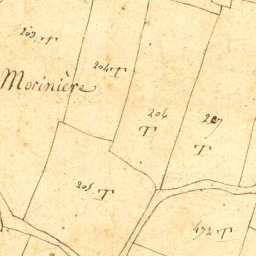 203 T
204 T
Morinière
206
T
207
T
205 T
472 T